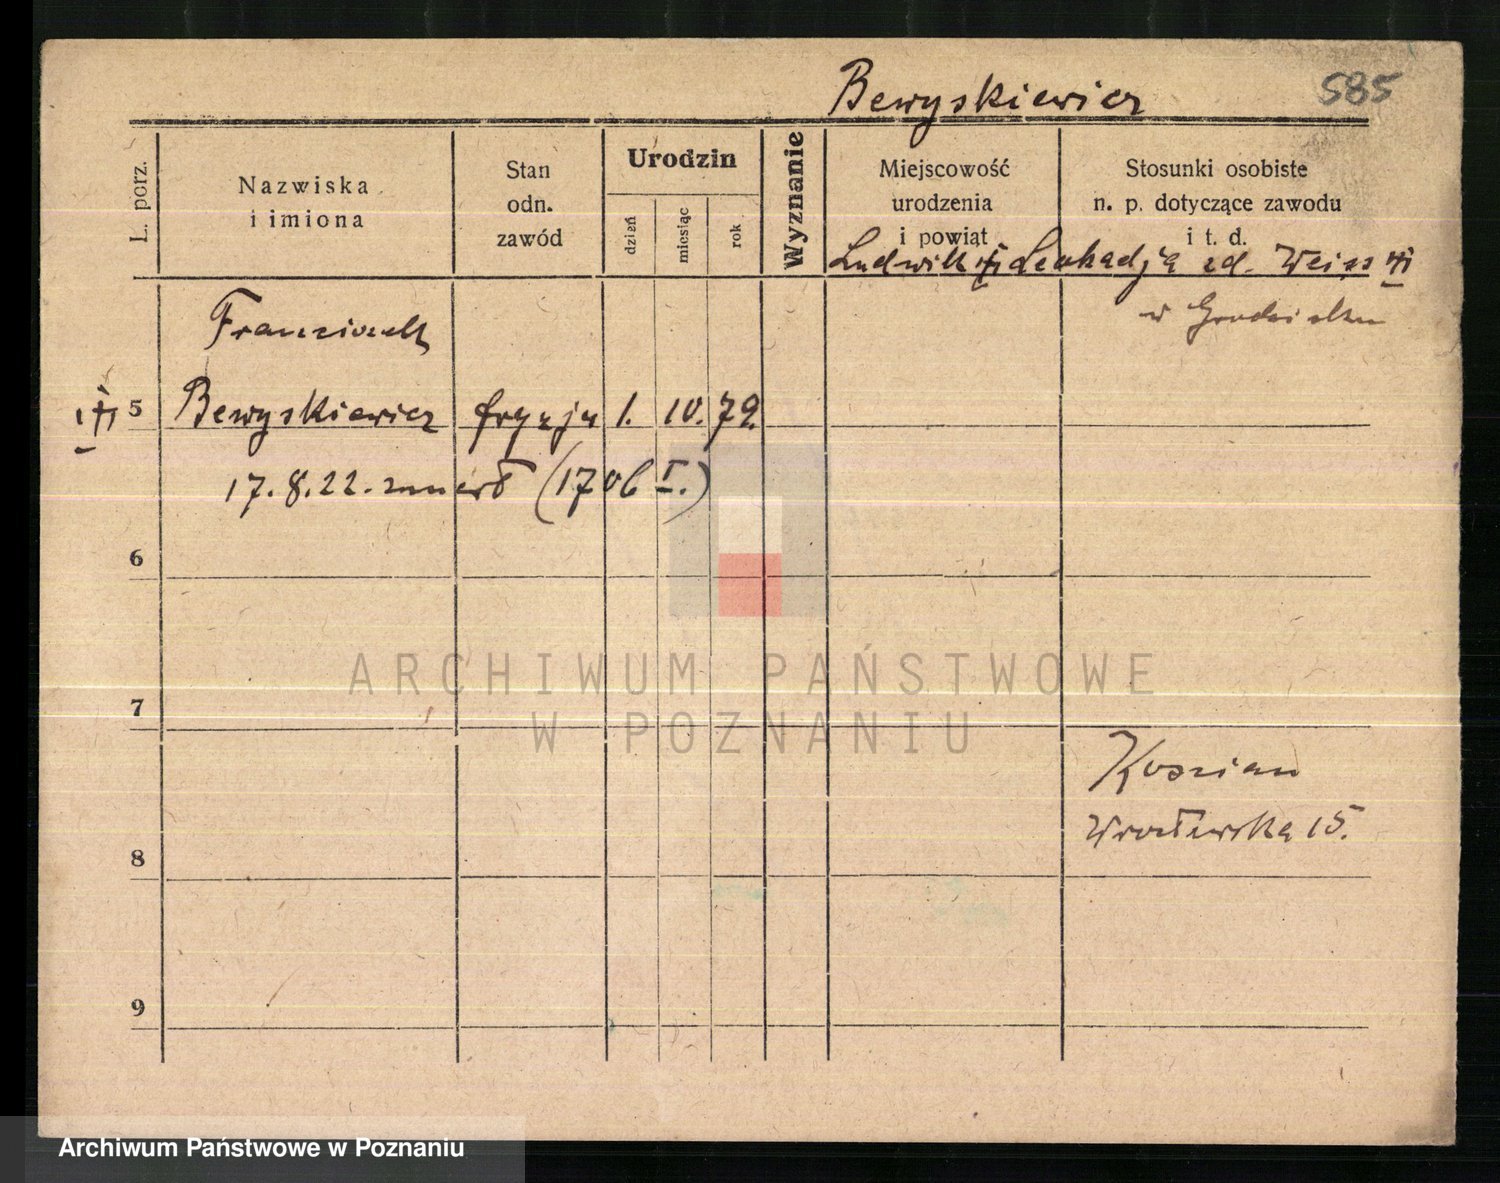 Bewyskiewicz 585
L. porz.
Nazwiska
i imiona
Stan
odn.
zawód
Urodzin
dzień
miesiąc
rok
Wyznanie
Miejscowość
urodzenia
i powiat
Stosunki osobiste
n. p. dotyczące zawodu
i t. d.
Ludwik Leokadja zd. Weiss
w Grodzisku
Franciszek
5 Bewyskiewicz fryzjer 1. 10. 79.
17. 8. 22. zmarł (1706 I.)
6
7
Koszian
Wrocławska 15.
8
9
ARCHIWUM PAŃSTWOWE
W POZNANIU
Archiwum Państwowe w Poznaniu